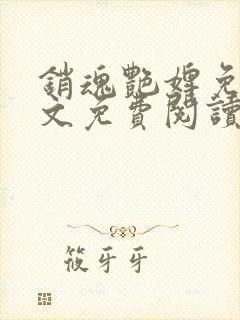 銷魂艷婢免
文免費閱讀
筱牙牙